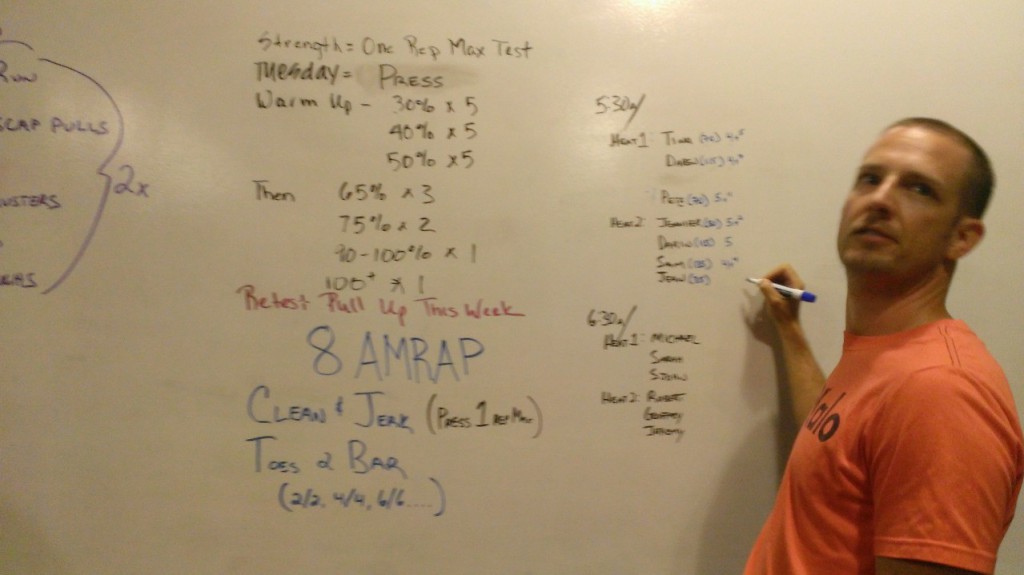 Run
SCAP PULLS
2x
Strength = One Rep Max Test
TUESDAY = PRESS
Warm Up - 30% x 5
40% x 5
50% x 5
Then 65% x 3
75% x 2
90-100% x 1
100+ x 1
Retest Pull Up This Week
8 AMRAP
CLEAN & JERK (PRESS 1 REP MAX)
TOES 2 BAR
(2/2, 4/4, 6/6....)
5:30a/
HEAT 1: TINA
PETE
HEAT 2: JENNIFER
SAM
6:30a/
HEAT 1: MICHAEL
SARAH
HEAT 2: ROBERT
JEREMY